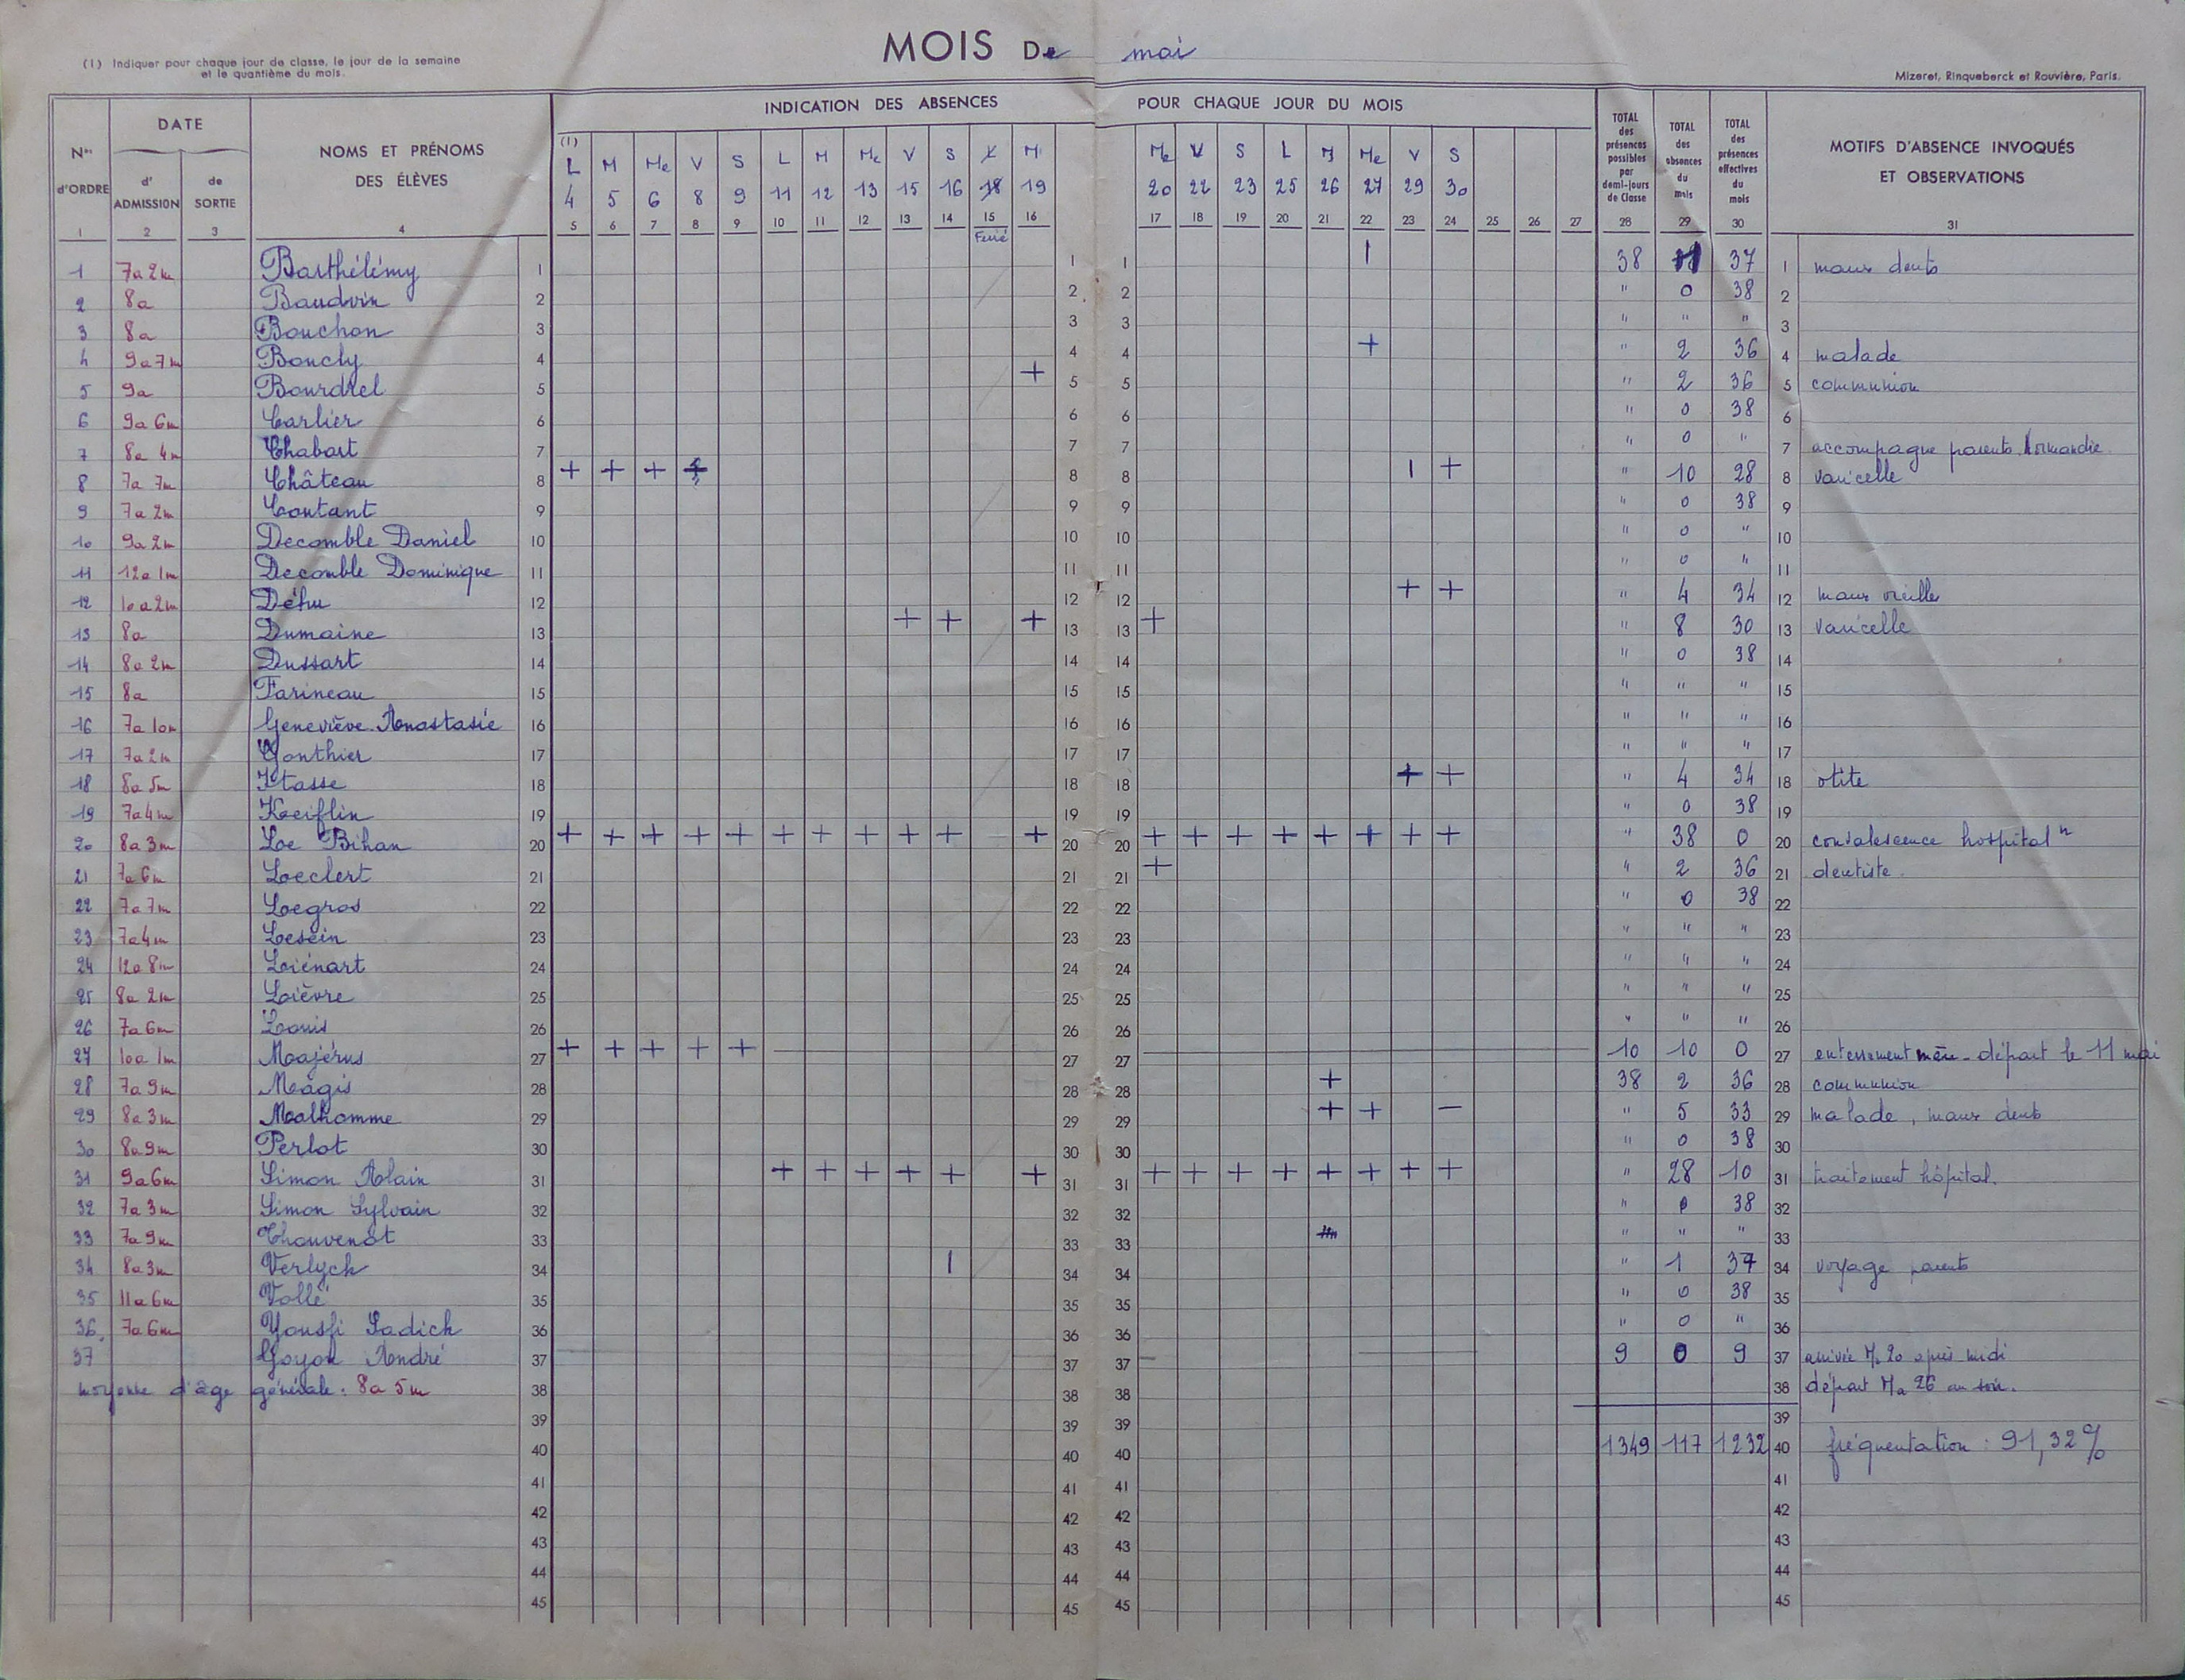 MOIS De mai
(1) Indiquer pour chaque jour de classe, le jour de la semaine
et le quantième du mois.
Mizeret, Rinqueberck et Rouvière, Paris.
Nos d'ORDRE DATE d'ADMISSION de SORTIE NOMS ET PRÉNOMS DES ÉLÈVES INDICATION DES ABSENCES POUR CHAQUE JOUR DU MOIS TOTAL des présences possibles par demi-jours de Classe TOTAL des absences du mois TOTAL des présences effectives du mois MOTIFS D'ABSENCE INVOQUÉS ET OBSERVATIONS
(1) L M Me V S L M Me V S L M Me V S L M Me V S
4 5 6 8 9 11 12 13 15 16 18 19 20 22 23 25 26 27 29 30
1 2 3 4 5 6 7 8 9 10 11 12 13 14 15 16 17 18 19 20 21 22 23 24 25 26 27 28 29 30 31
Ferié
1 7a 2m Barthélémy 1 1 1 | 38 1 37 1 maux dents
2 8a Baudvin 2 2 2 " 0 38 2
3 8a Bouchon 3 3 3 " " " 3
4 9a 7m Boucly 4 4 4 + " 2 36 4 malade
5 9a Bourdrel 5 + 5 5 " 2 36 5 communion
6 9a 6m Carlier 6 6 6 " 0 38 6
7 8a 4m Chabart 7 7 7 " 0 " 7 accompagne parents Normandie
8 7a 7m Château 8 + + + + 8 8 | + " 10 28 8 varicelle
9 7a 2m Contant 9 9 9 " 0 38 9
10 9a 2m Decomble Daniel 10 10 10 " 0 " 10
11 12a 1m Decomble Dominique 11 11 11 " 0 " 11
12 10a 2m Déhu 12 12 12 + + " 4 34 12 maux oreilles
13 8a Dumaine 13 + + + 13 13 + " 8 30 13 varicelle
14 8a 2m Dussart 14 14 14 " 0 38 14
15 8a Farineau 15 15 15 " " " 15
16 7a 10m Geneviève Anastasie 16 16 16 " " " 16
17 7a 2m Gonthier 17 17 17 " " " 17
18 8a 5m Itasse 18 18 18 + + " 4 34 18 otite
19 7a 4m Keiflin 19 19 19 " 0 38 19
20 8a 3m Le Bihan 20 + + + + + + + + + + + 20 20 + + + + + + + + " 38 0 20 convalescence hospital n
21 7a 6m Leclert 21 21 21 + " 2 36 21 dentiste.
22 7a 7m Legros 22 22 22 " 0 38 22
23 7a 4m Lesein 23 23 23 " " " 23
24 12a 8m Liénart 24 24 24 " " " 24
25 8a 2m Lièvre 25 25 25 " " " 25
26 7a 6m Louis 26 26 26 " " " 26
27 10a 1m Majérus 27 + + + + + 27 27 10 10 0 27 enterrement mère - départ le 11 mai
28 7a 9m Magis 28 28 28 + 38 2 36 28 communion
29 8a 3m Malhomme 29 29 29 + + – " 5 33 29 malade, maux dents
30 8a 9m Perlot 30 30 30 " 0 38 30
31 9a 6m Simon Alain 31 + + + + + + 31 31 + + + + + + + + " 28 10 31 traitement hôpital.
32 7a 3m Simon Sylvain 32 32 32 " 0 38 32
33 7a 9m Thouvenot 33 33 33 " " " 33
34 8a 3m Verlych 34 | 34 34 " 1 37 34 voyage parents
35 11a 6m Vollé 35 35 35 " 0 38 35
36. 7a 6m Yousfi Sadick 36 36 36 " 0 " 36
37 Goyon André 37 37 37 9 0 9 37 arrivée Me 20 après midi
moyenne d'âge générale : 8a 5m 38 38 38 38 départ Ma 26 au soir.
39 39 39 39
40 40 40 1349 117 1232 40 fréquentation : 91,32%
41 41 41 41
42 42 42 42
43 43 43 43
44 44 44 44
45 45 45 45